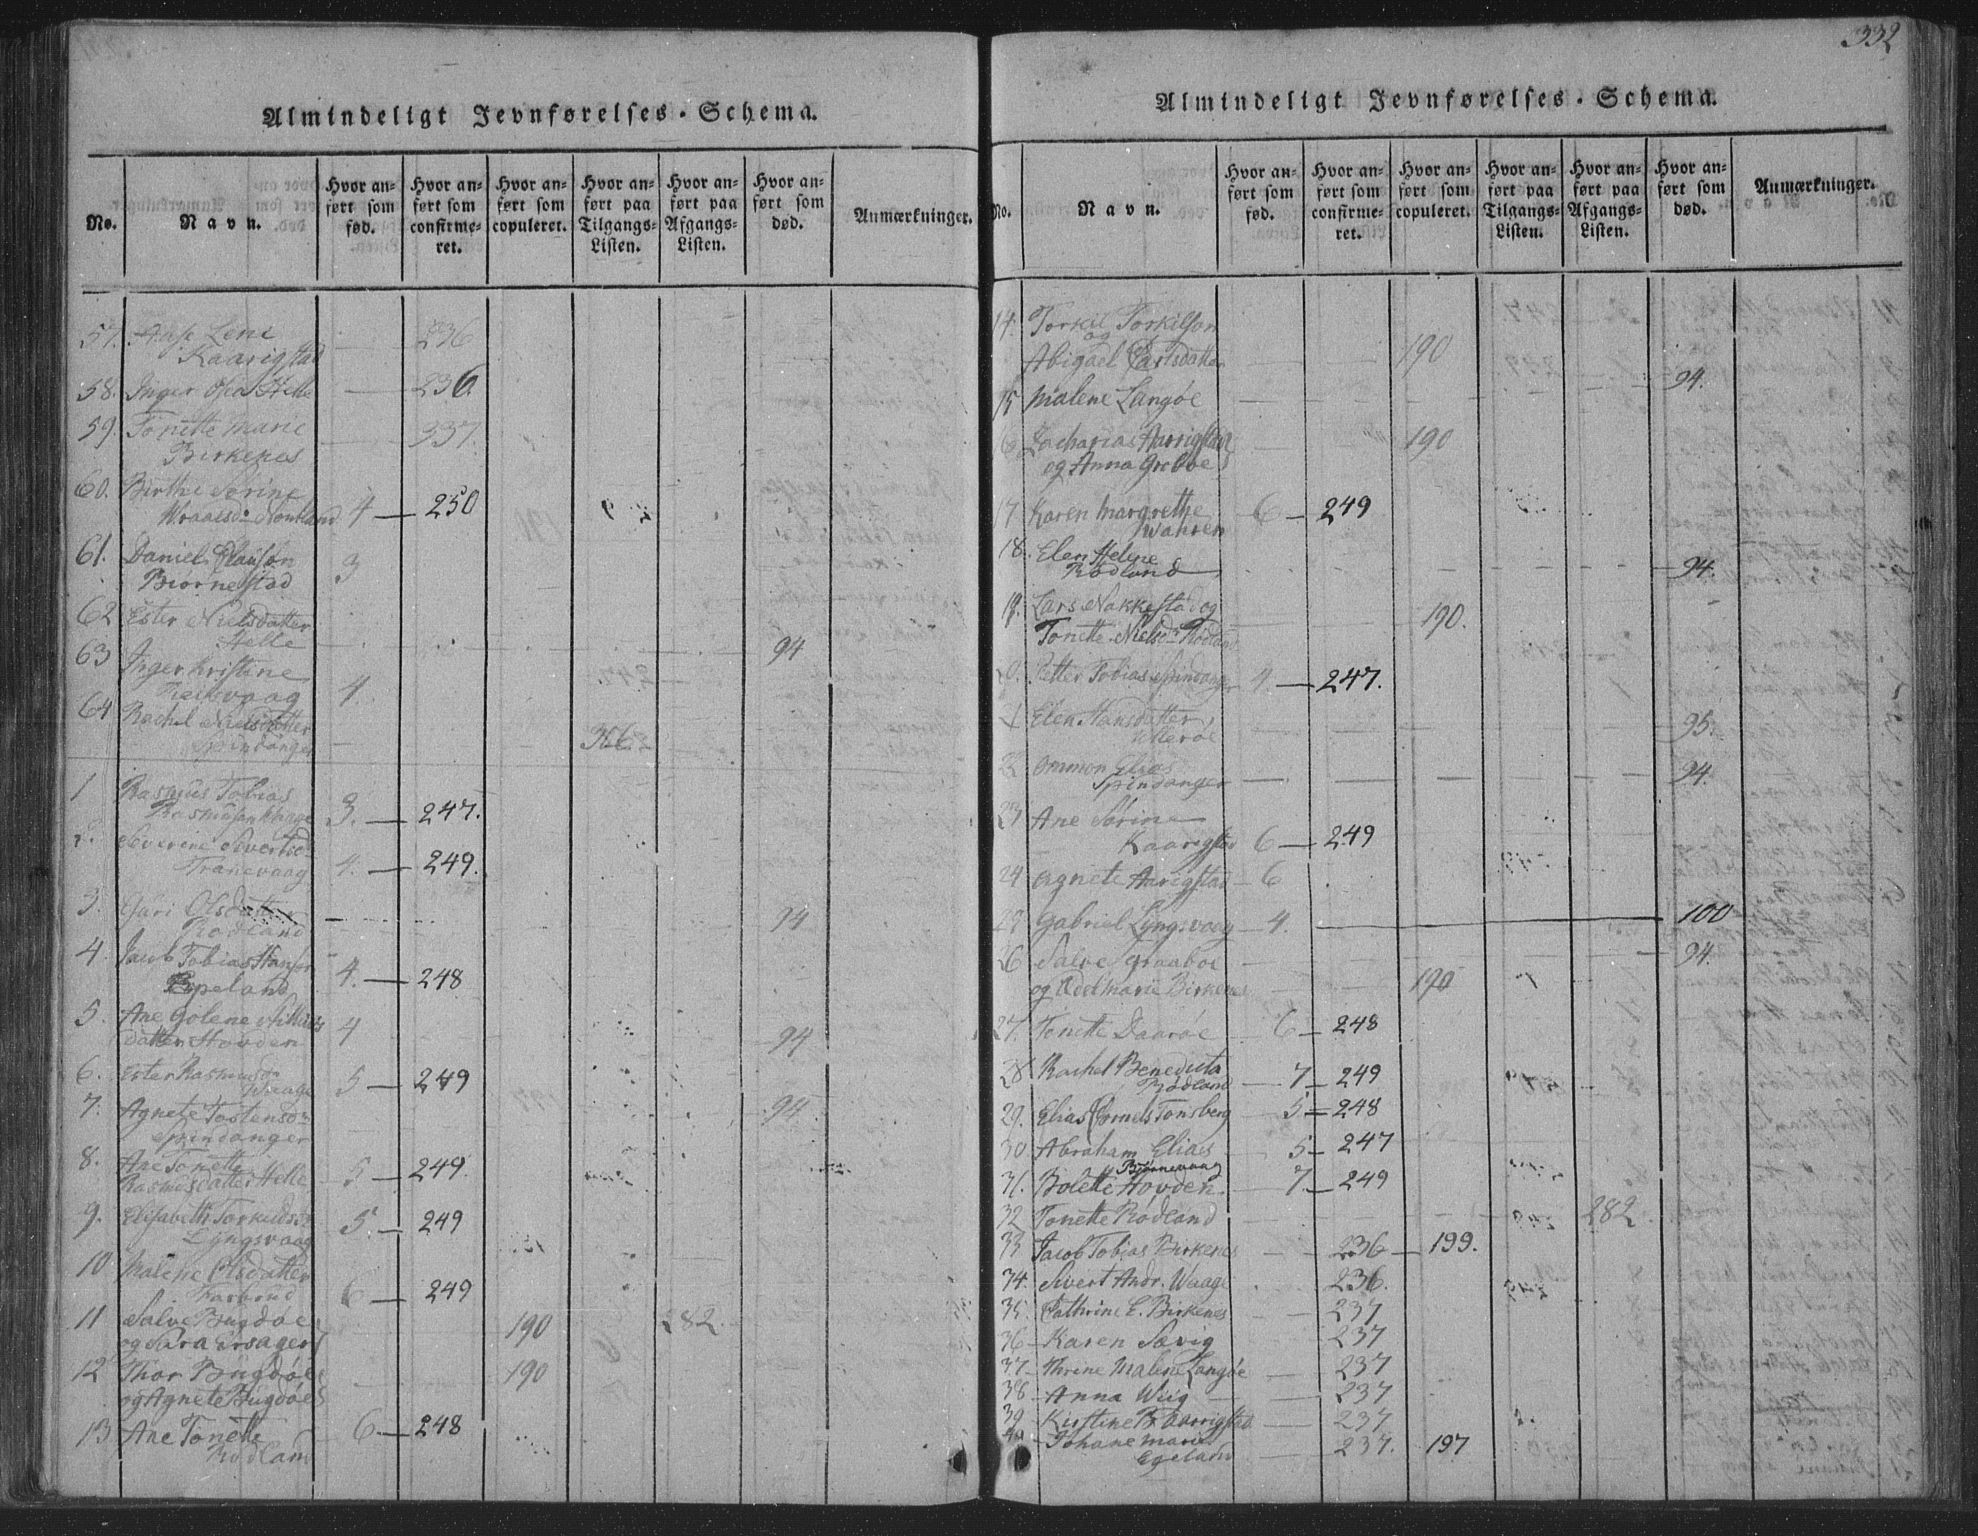 332
Almindeligt Jevnførelses-Schema.
No.
Navn.
Hvor anført som fød.
Hvor anført som confirmeret.
Hvor anført som copuleret.
Hvor anført paa Tilgangs-Listen.
Hvor anført paa Afgangs-Listen.
Hvor anført som død.
Anmærkninger.
57. Lene
Kaarigstad — 236
58. Inger Helle — 236.
59. Tonette Marie — 337.
Birkenes
60. Birthe Serine
4 — 250
61. Daniel Clauson 3
Biornestad
62 Ester Nielsdatter
Helle 94
63 Inger Kristine
4
64 Rachel Nielsdatter
Spindanger 306
1 Rasmus Tobias
3. — 247.
2. Severine
Tranevaag 4. — 249.
3. Guri Olsdatter 94
Rødland
4. Jacob Tobias Hansen
Egeland 4. — 248
5. Ane Golene
datter Hovden 4 94
6. Ester Rasmusd
Waage 5 — 249
7. Agnete Tostensd 94
Spindanger
8. Ane Tonette
Rasmusdatter Helle 5 — 249.
9. Elisabeth Torkelds
Lyngsvaag 5 — 249
10 Malene Olsdatter
6 — 249
11 Salve Bugdøe
og Sara 190 282.
12 Thor Bugdøe 190
og Agnete Bugdøe
13 Ane Tonette 6 — 248
Rødland
Almindeligt Jevnførelses-Schema.
No.
Navn.
Hvor anført som fød.
Hvor anført som confirmeret.
Hvor anført som copuleret.
Hvor anført paa Tilgangs-Listen.
Hvor anført paa Afgangs-Listen.
Hvor anført som død.
Anmærkninger.
14. Torkil Torkilson
og
Abigael Carlsdatter 190
15 Malene Langøe 94.
16 Zacharias Aarrigstad 190
og Anna Greboe
17 Karen Margrethe 6 — 249
18. Elen Helene
Rødland 94.
19. Lars Nakkestad og 190.
Tonette Nielsd Rødland
20. Petter Tobias Spindanger 4 — 247.
Elen Hansdatter 95.
Ytterøe
22 Ommon Elias 94.
Spindanger
23 Ane Serine
Kaarigstad 6 — 249
24 Agnete Aarigstad — 6
25 Gabriel Lyngsvaag — 4. 100
26 Salve Graaboe 94.
og Edel Marie Birkenes 190
27. Tonette Daarøe 6 — 248
28 Rachel Benedicta
Rødland 7 — 249
29. Elias Cornels Tonsberg 5 — 248
30 Abraham Elias 5 — 247
Biørnevaag
31. Bolette Hovden 7. — 249
32 Tonette Rødland 282
33 Jacob Tobias Birkenes 236 — 199.
34. Sivert Andr. Waage 236.
35. Cathrine E. Birkenes 237
36 Karen Sævig 237
37. Thrine Malene Langøe 237
38 Anna Wiig 237
39 Kirstine B. Aarrigstad 237
40 Johane Marie
Egeland 237. 197